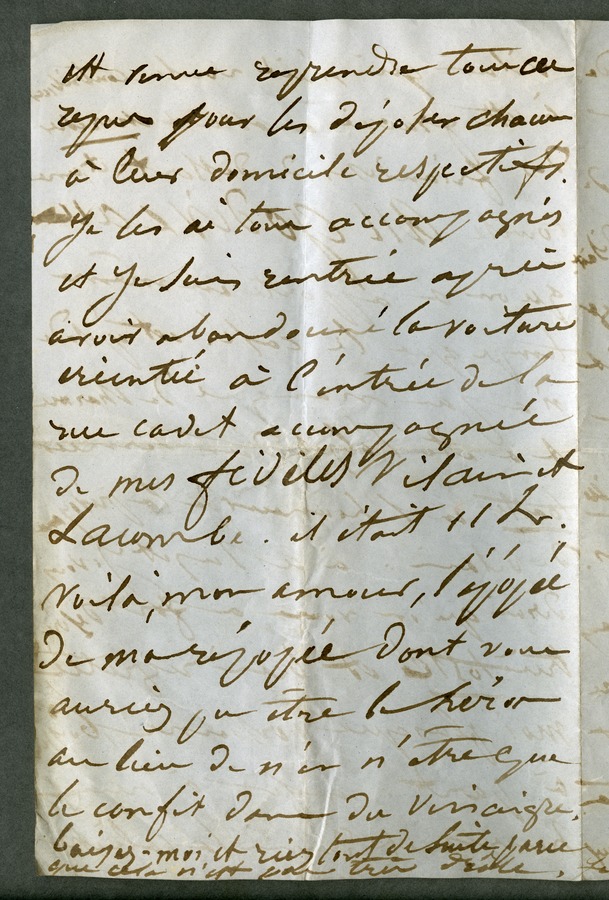 est venue reprendre tous ces
repus pour les déposer chacun
à leur domicile respectif.
Je les ai tous accompagnés
et je suis rentrée après
avoir abandonné la voiture
éreintée à l'entrée de la
rue cadet accompagnée
de mes fidèles Vilain et
Lacombe. il était 11 h.
Voilà, mon amour,
de ma dont vous
auriez pu être le héros
au lieu de n'en n'être que
le confit dans du vinaigre.
baisez-moi et riez tout de suite parce
que cela n'est pas très drôle.